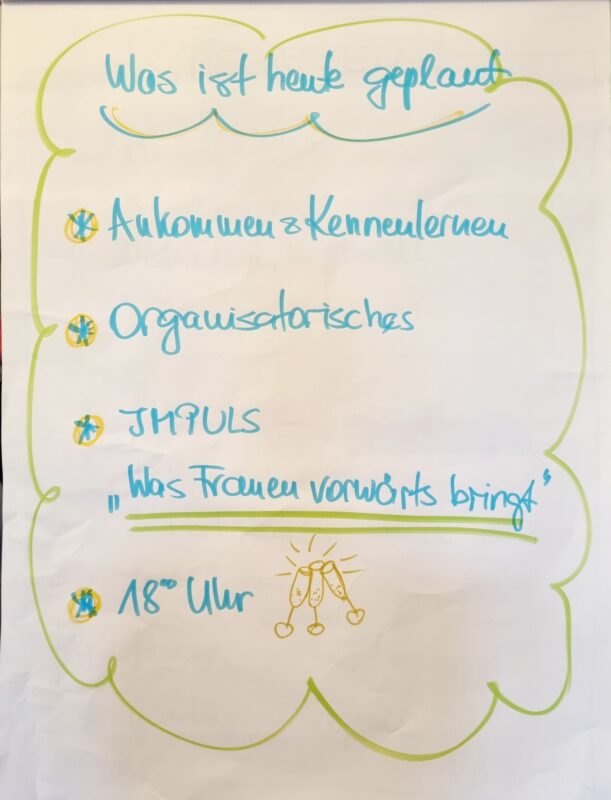 Was ist heute geplant
Ankommen & Kennenlernen
Organisatorisches
IMPULS
„Was Frauen vorwärts bringt"
18⁰⁰ Uhr